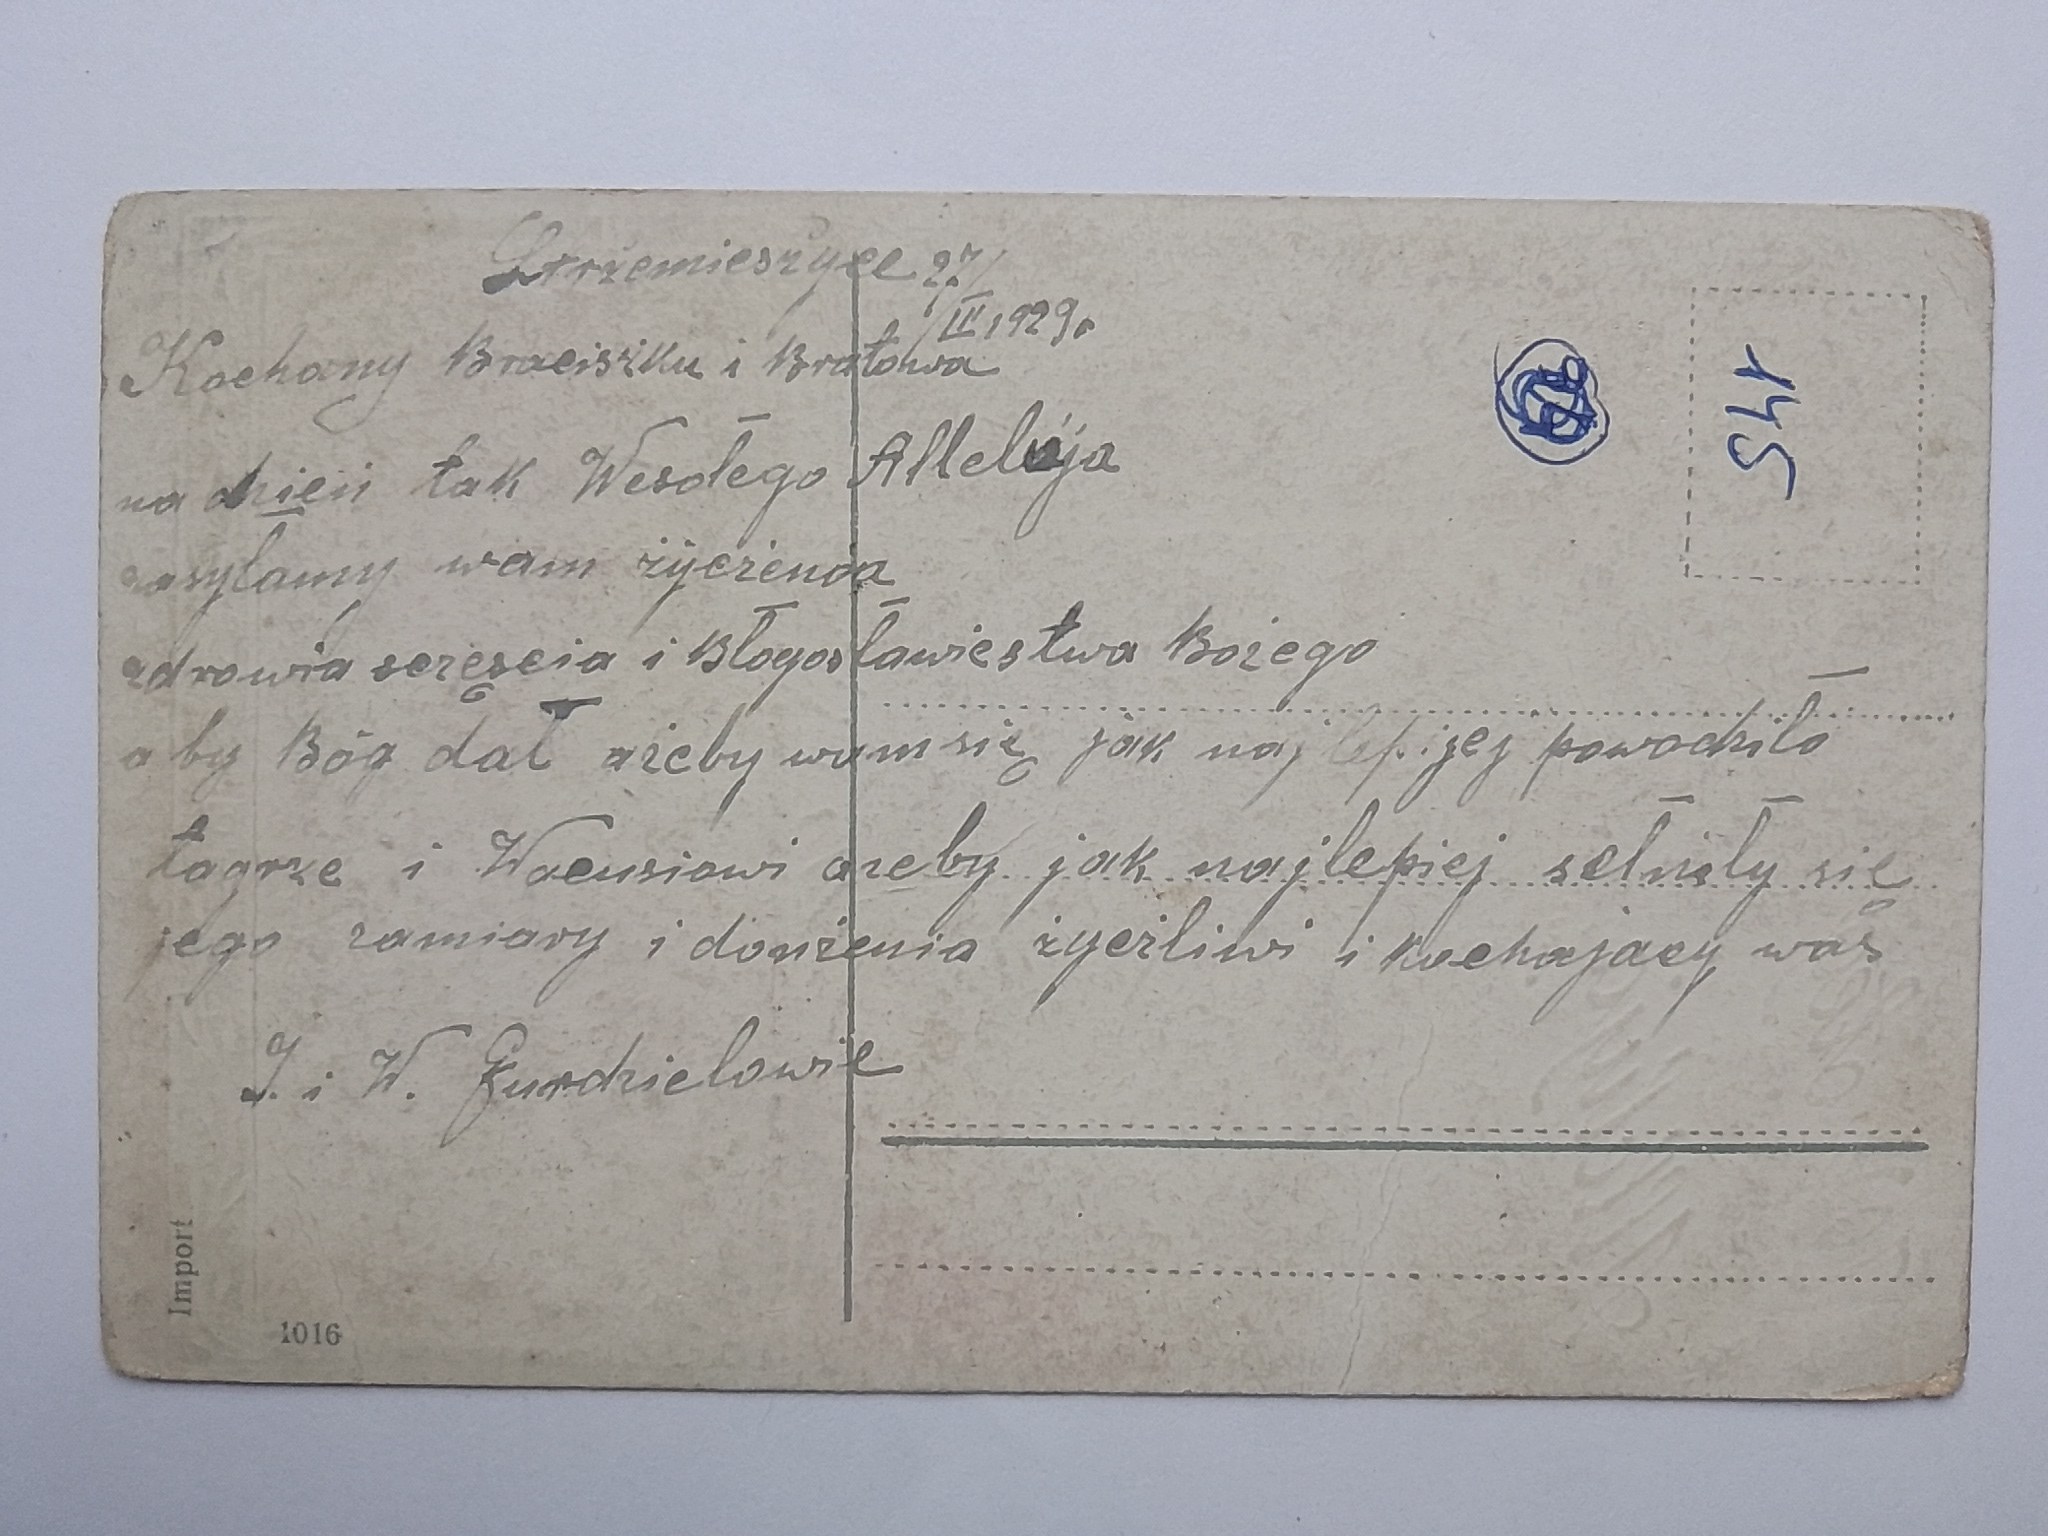 Strzemieszyce 27/
III 1929r
Kochany Braciszku i Bratowa
na dzień tak Wesołego Alleluja
zasyłamy wam życzenia
zdrowia sczęscia i Błogosławiestwa Bożego
aby Bóg dał ażeby wam się jak najlepijej powodziło
tagrze i Wacusiowi ażeby jak najlepiej sełniły się
jego zamiary i donżenia życzliwi i kochajacy was
J. i W. Gurdzielowie
Import
1016
145